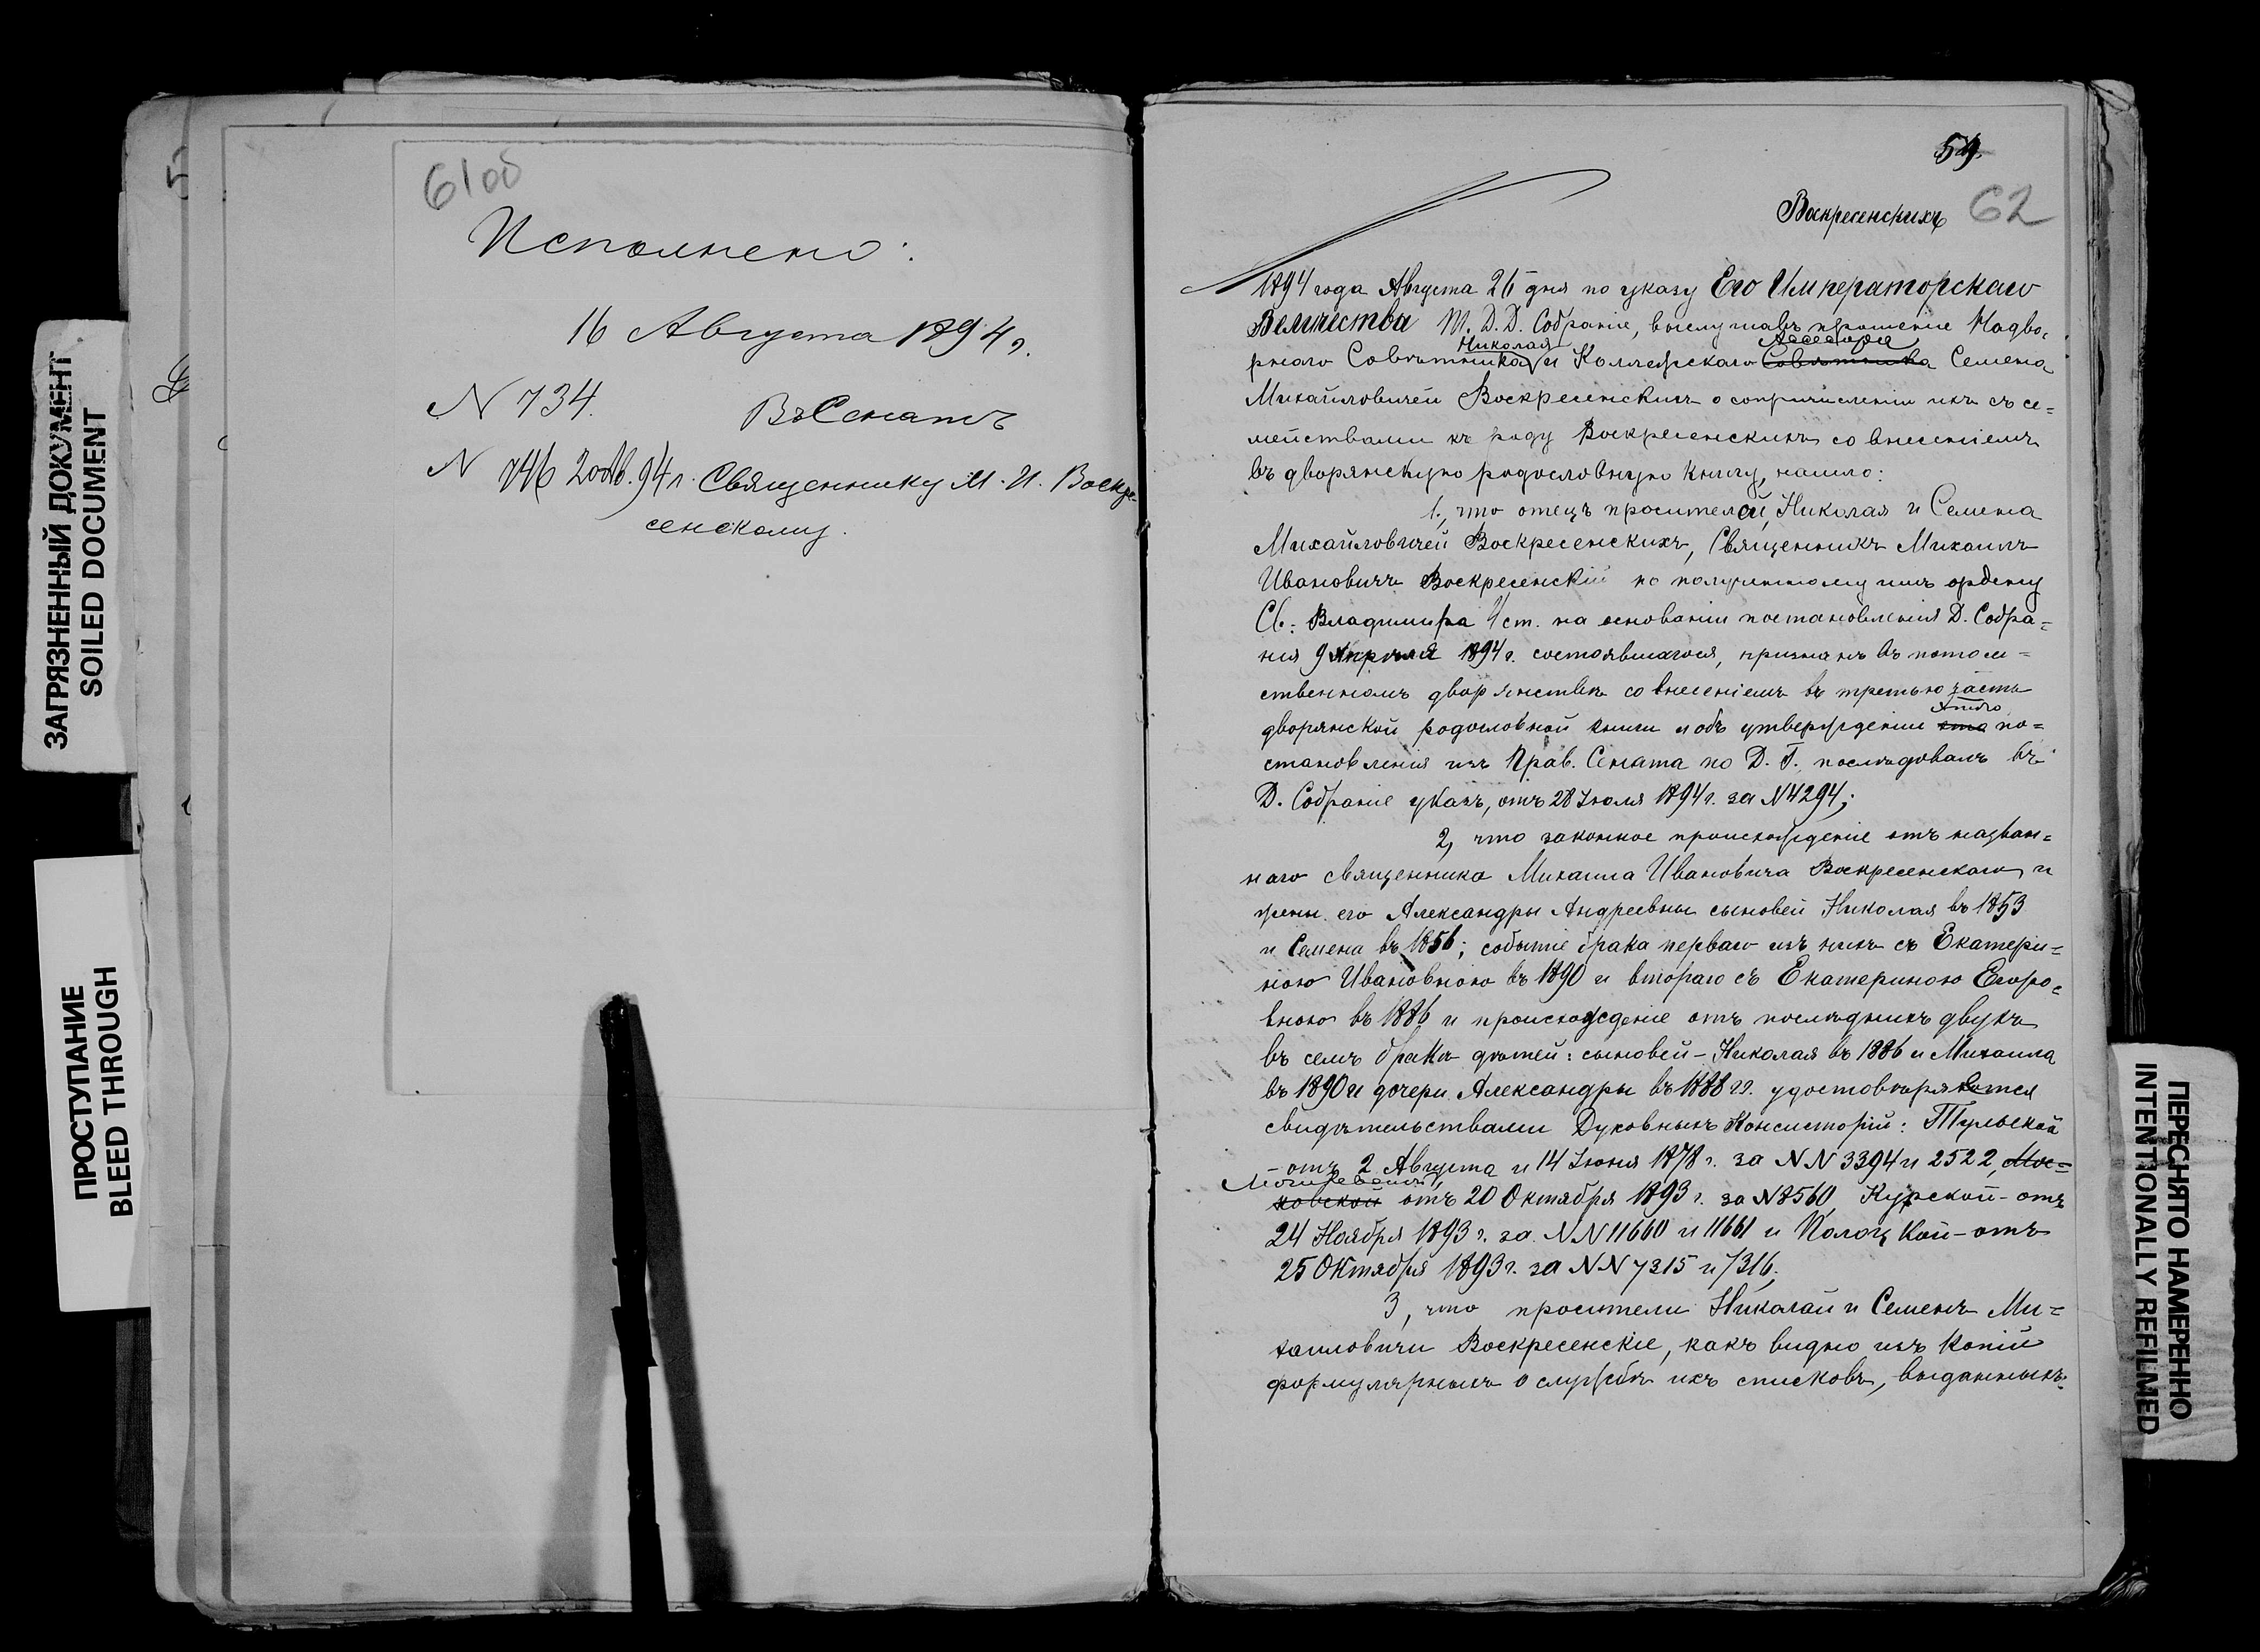 ЗАГРЯЗНЕННЫЙ ДОКУМЕНТ
SOILED DOCUMENT
ПРОСТУПАНИЕ
BLEED THROUGH
61об
Исполнено:
16 Августа 1894 г.
N 734. Въ Сенатъ
N 746 20 Ав. 94 г. Священнику М. И. Воскре-
сенскому.
59.
62
Воскресенскихъ
1894 года Августа 26 дня по указу Его Императорскаго
Величества Т. Д. Д. Собраніе, выслушавъ прошеніе Надво-
Николая Ассесора
рнаго Совѣтника и Коллежскаго Совѣтника Семена
Михайловичей Воскресенскихъ о сопричисленіи ихъ съ се=
мействами къ роду Воскресенскихъ со внесеніемъ
въ дворянскую родословную книгу, нашло:
1., что отецъ просителей, Николая и Семена
Михайловичей Воскресенскихъ, Священникъ Михаилъ
Ивановичъ Воскресенскій по полученному имъ ордену
Св. Владимира 4 ст. на основаніи постановленія Д. Собра=
нія 9 Апрѣля 1894 г. состоявшагося, признанъ въ потом=
ственномъ дворянствѣ со внесеніемъ въ третью часть
дворянской родословной книги и объ утвержденіи по=
становленія изъ Прав. Сената по Д. Г. послѣдовалъ въ
Д. Собраніе указъ, отъ 28 Іюля 1894 г. за N 4294;
2, что законное происхожденіе отъ назван=
наго священника Михаила Ивановича Воскресенскаго и
жены его Александры Андреевны сыновей Николая въ 1853
и Семена въ 1856; событіе брака перваго изъ нихъ съ Екатери=
ною Ивановною въ 1890 и втораго съ Екатериною Егоро-
вною въ 1886 и происхожденіе отъ послѣднихъ двухъ
въ семъ бракѣ дѣтей: сыновей - Николая въ 1886 и Михаила
въ 1890 и дочери Александры въ 1888 гг. удостовѣряются
свидѣтельствами Духовныхъ Консисторій: Тульской
- отъ 2 Августа и 14 Іюня 1878 г. за NN 3394 и 2522, Мос=
Могилевской,
ковской отъ 20 Октября 1893 г. за N 8560, Курской - отъ
24 Ноября 1893 г. за NN 11660 и 11661 и Полоцкой - отъ
25 Октября 1893 г. за NN 7315 и 7316;
3, что просители Николай и Семенъ Ми=
хаиловичи Воскресенскіе, какъ видно изъ копій
формулярныхъ о службѣ ихъ списковъ, выданныхъ
ПЕРЕСНЯТО НАМЕРЕННО
INTENTIONALLY REFILMED